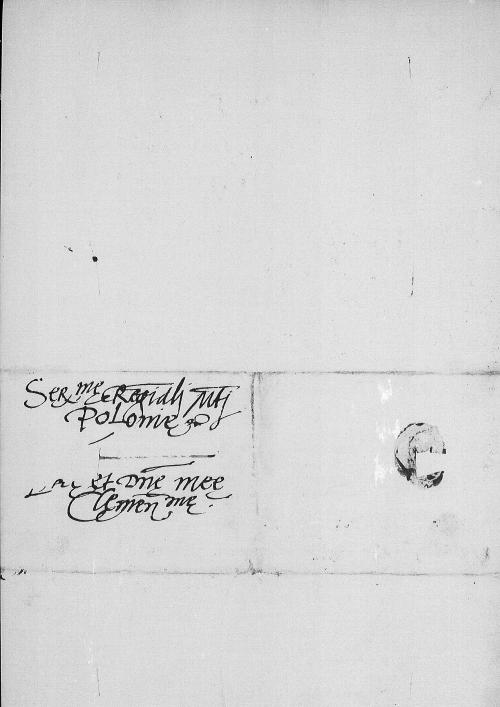 Ser.me Regiali Mti
Polonie
et Dne mee
Clemen.me.